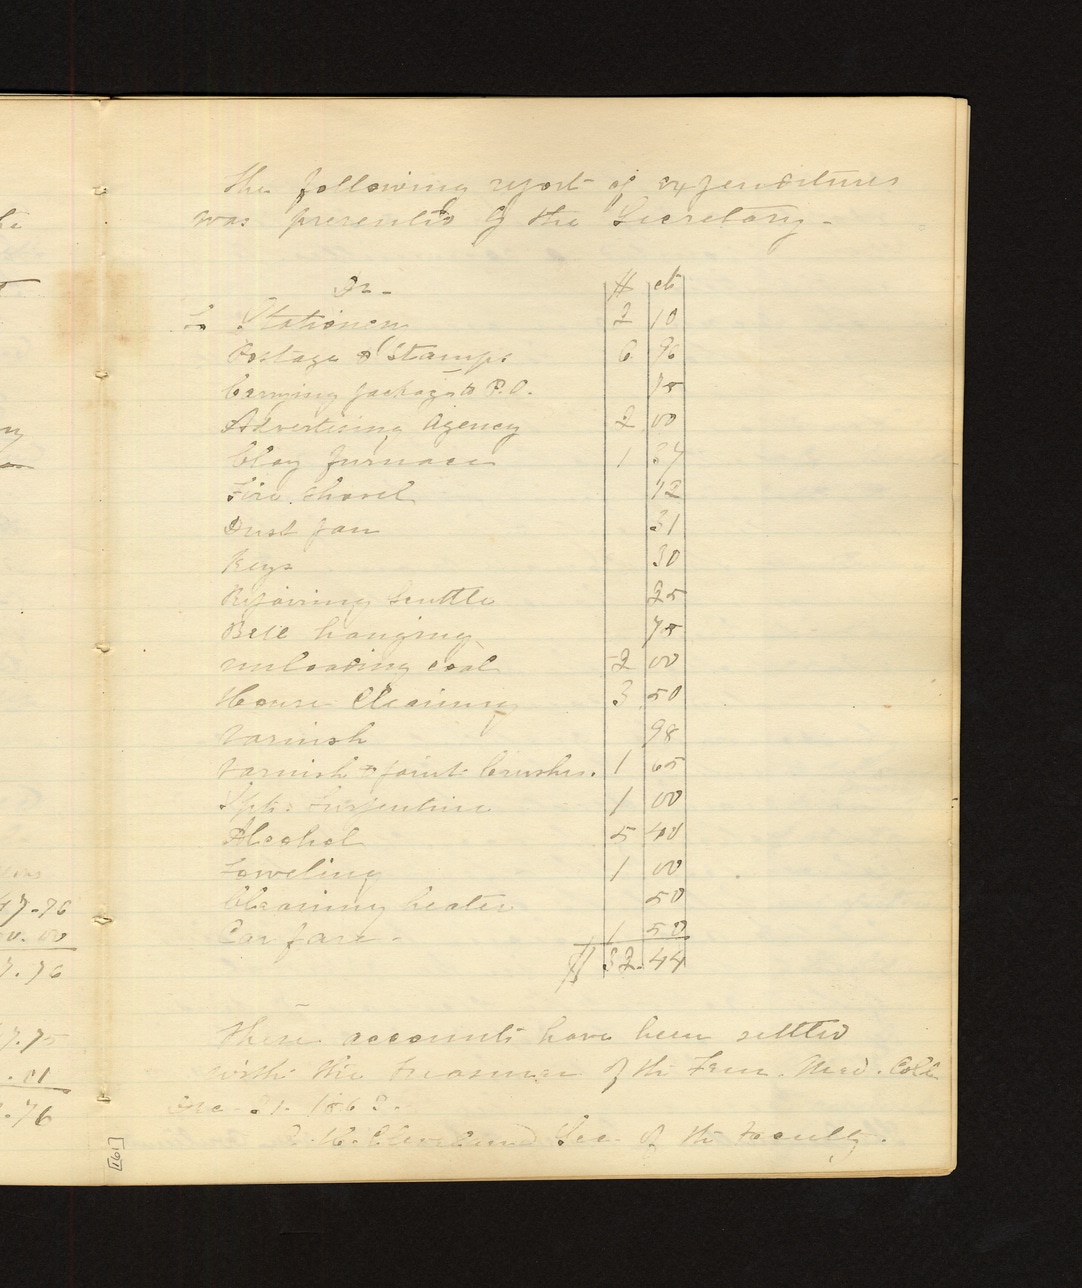 The following report of expenditures
was presented by the Secretary -
Dr - $ cts
To Stationery 2 10
Postage & Stamps 6 96
Carrying packages to P.O. 75
Advertising Agency 2 00
Clay furnace 1 37
Fire shovel 12
Dust pan 31
Keys 30
Repairing Scuttle 25
Bell hanging 75
unloading coal 2 00
House Cleaning 3 50
Varnish 98
Varnish & paint brushes. 1 65
Spts. Turpentine 1 00
Alcohol 5 40
Toweling 1 00
Cleaning heater 50
Car fare - 1 50
$ 32.44
These accounts have been settled
with the treasurer of the Fem. Med. Coll
Dec. 31. 1863.
E. H. Cleveland Sec. of the Faculty.
47.76
7.76
7.75
.01
.76
[161]